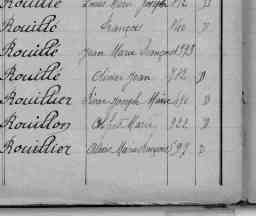 Rouillé Louis Marie Joseph 812 D
Rouillé François 810 D
Rouillé Jean Marie François 528
Rouillé Olivier Jean 712 D
Rouillier Joseph Marie D
Rouillon Marie 222 D
Rouillier Marie François 599 D